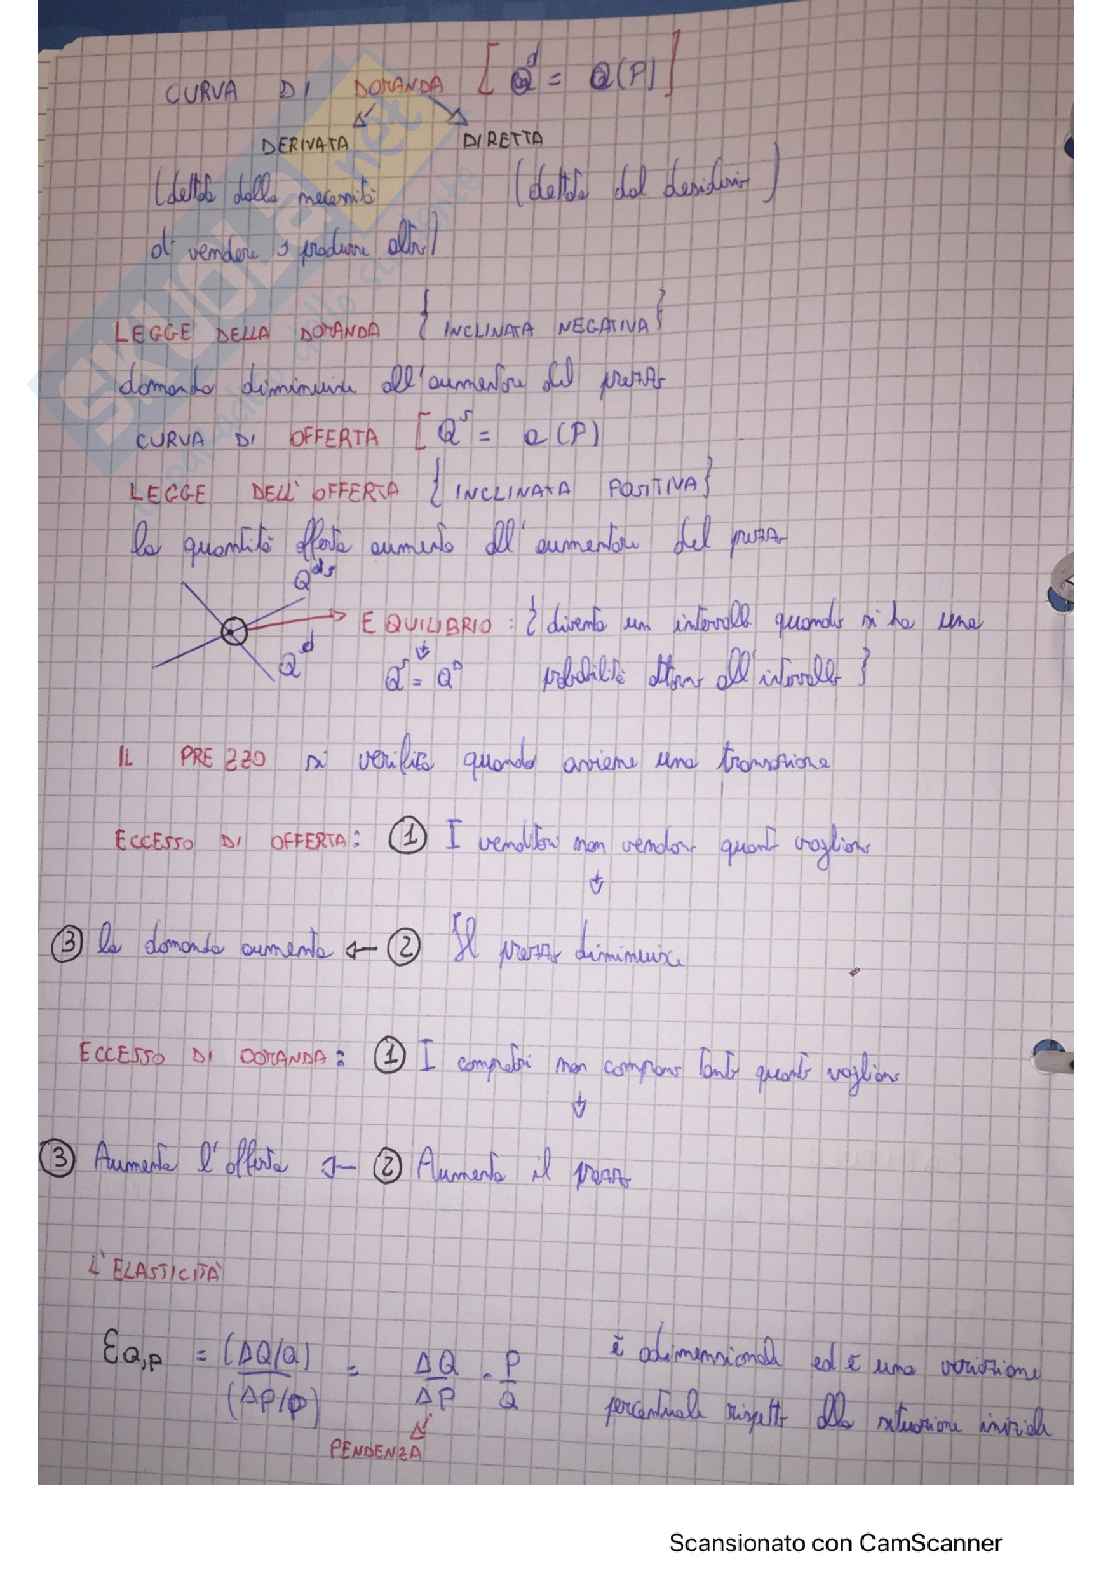 CURVA DI DOMANDA [Qᵈ = Q(P)]
DERIVATA DIRETTA
(detta dalla necessità (detta dal desiderio)
di vendere o produrre altro)
LEGGE DELLA DOMANDA {INCLINATA NEGATIVA}
domanda diminuisce all'aumentare del prezzo
CURVA DI OFFERTA [Qˢ = Q(P)
LEGGE DELL'OFFERTA {INCLINATA POSITIVA}
la quantità offerta aumenta all'aumentare del prezzo
EQUILIBRIO: {diventa un intervallo quando si ha una
Qᵈ
probabilità attorno all'intervallo}
IL PREZZO si verifica quando avviene una transazione
ECCESSO DI OFFERTA: ① I venditori non vendono quanto vogliono
③ la domanda aumenta ← ② Il prezzo diminuisce
ECCESSO DI DOMANDA: ① I compratori non comprano tanto quanto vogliono
③ Aumenta l'offerta ← ② Aumenta il prezzo
L'ELASTICITÀ
ℰQ,P = (ΔQ/Q) / (ΔP/P) = ΔQ/ΔP · P/Q è adimensionale ed è una variazione
percentuale rispetto alla situazione iniziale
PENDENZA
Scansionato con CamScanner